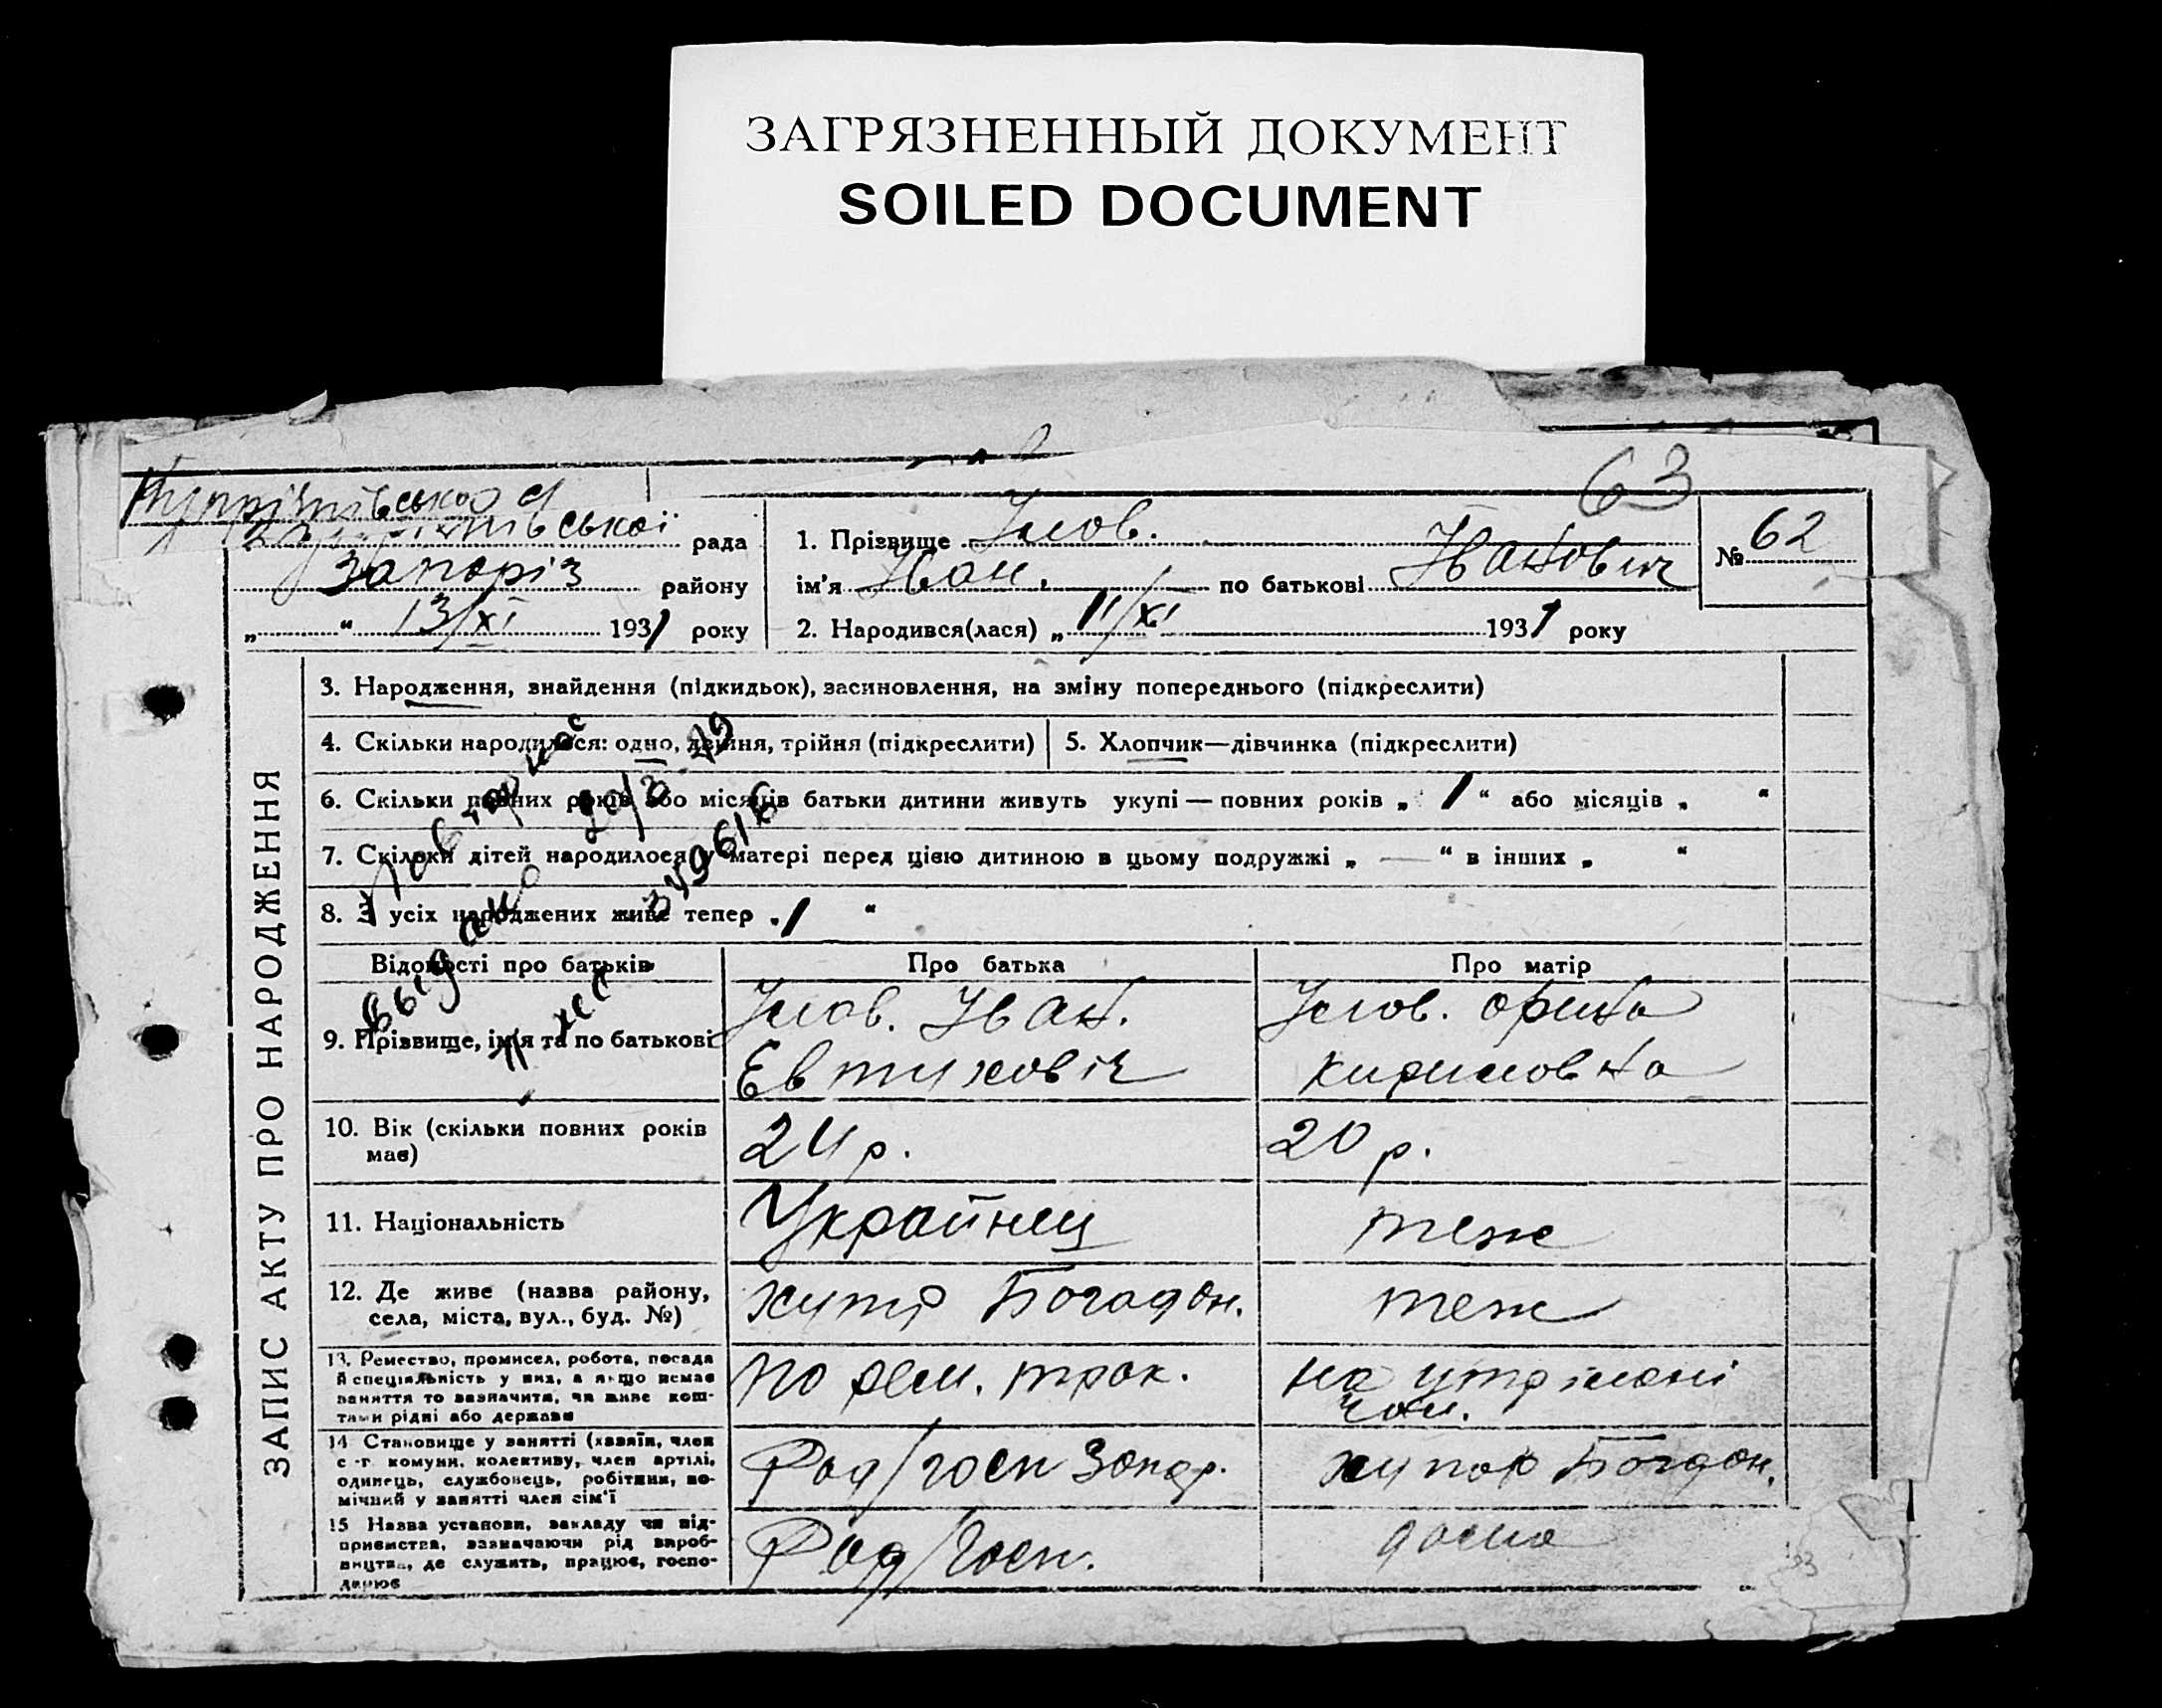 ЗАГРЯЗНЕННЫЙ ДОКУМЕНТ
SOILED DOCUMENT
63
рада
Запоріз району
„ “ 13/XI 1931 року
1. Прізвище
ім'я Іван. по батькові Іванович
2. Народився(лася) „ 11/XI 1931 року
№ 62
ЗАПИС АКТУ ПРО НАРОДЖЕННЯ
3. Народження, знайдення (підкидьок), засиновлення, на зміну попереднього (підкреслити)
4. Скільки народилося: одно, двійня, трійня (підкреслити)
5. Хлопчик—дівчинка (підкреслити)
6. Скільки повних років або місяців батьки дитини живуть укупі — повних років „ 1 “ або місяців „ “
7. Скільки дітей народилося у матері перед цією дитиною в цьому подружжі „ — “ в інших „ “
8. З усіх народжених живе тепер „ 1 “
Відомості про батьків
Про батька
Про матір
9. Прізвище, ім'я та по батькові
Іван.
Євтиховіч
Орина
Кириловна
10. Вік (скільки повних років
має)
24 р.
20 р.
11. Національність
Українец
теж
12. Де живе (назва району,
села, міста, вул., буд. №)
хутір Богадон.
теж
13. Ремество, промисел, робота, посада
й спеціяльність у них, а якщо немає
заняття то зазначити, чи живе кош-
тами рідні або держави
по рем. трак.
на утрімані
чол.
14 Становище у занятті (хазяїн, член
с.-г. комуни, колективу, член артілі,
одинець, службовець, робітник, по-
мічний у занятті член сім'ї
Рад/госп
хутор Богдан.
15 Назва установи, закладу чи під-
приємства, зазначаючи рід вироб-
ництва, де служить, працює, госпо-
дарює
Рад/госп.
дома
Повторное
выдано